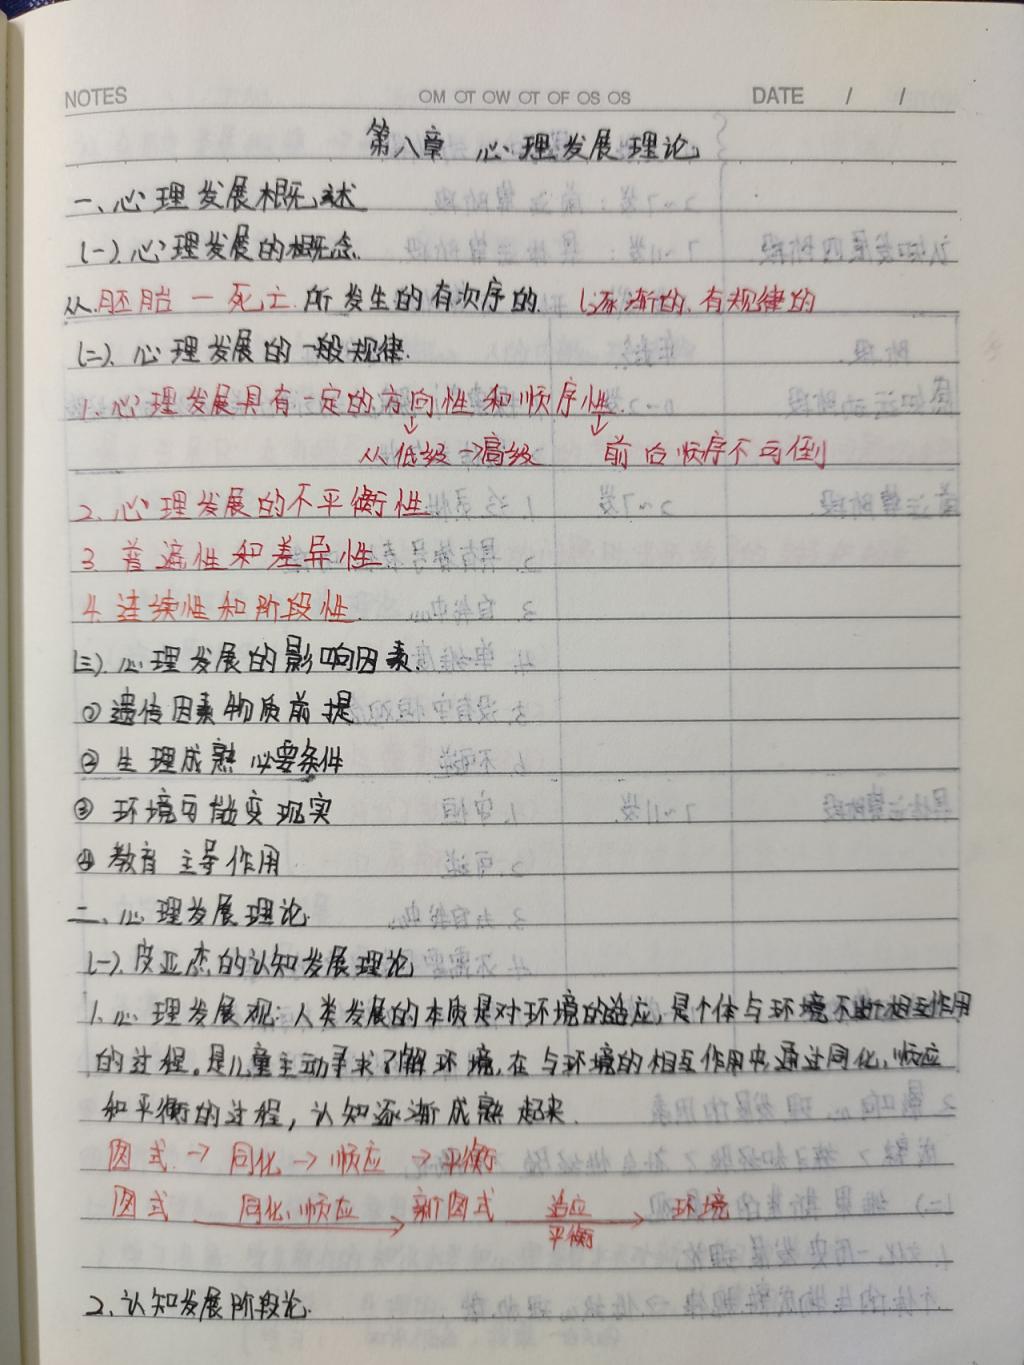 NOTES OM OT OW OT OF OS OS DATE / /
第八章 心理发展理论
一、心理发展概述
(一).心理发展的概念.
从胚胎一死亡.所发生的有次序的. 逐渐的.有规律的
(二).心理发展的一般规律.
1.心理发展具有一定的方向性和顺序性.
从低级→高级 前后顺序不可倒
2.心理发展的不平衡性.
3.普遍性和差异性.
4.连续性和阶段性.
(三).心理发展的影响因素.
①遗传因素物质前提
②生理成熟 必要条件
③环境可能变现实
④教育 主导作用
二、心理发展理论.
(一).皮亚杰的认知发展理论
1.心理发展观:人类发展的本质是对环境的适应,是个体与环境不断相互作用
的过程。是儿童主动寻求了解环境,在与环境的相互作用中,通过同化,顺应
和平衡的过程,认知逐渐成熟起来.
图式→同化→顺应→平衡
图式 同化、顺应 新图式 适应 环境
平衡
2.认知发展阶段论.